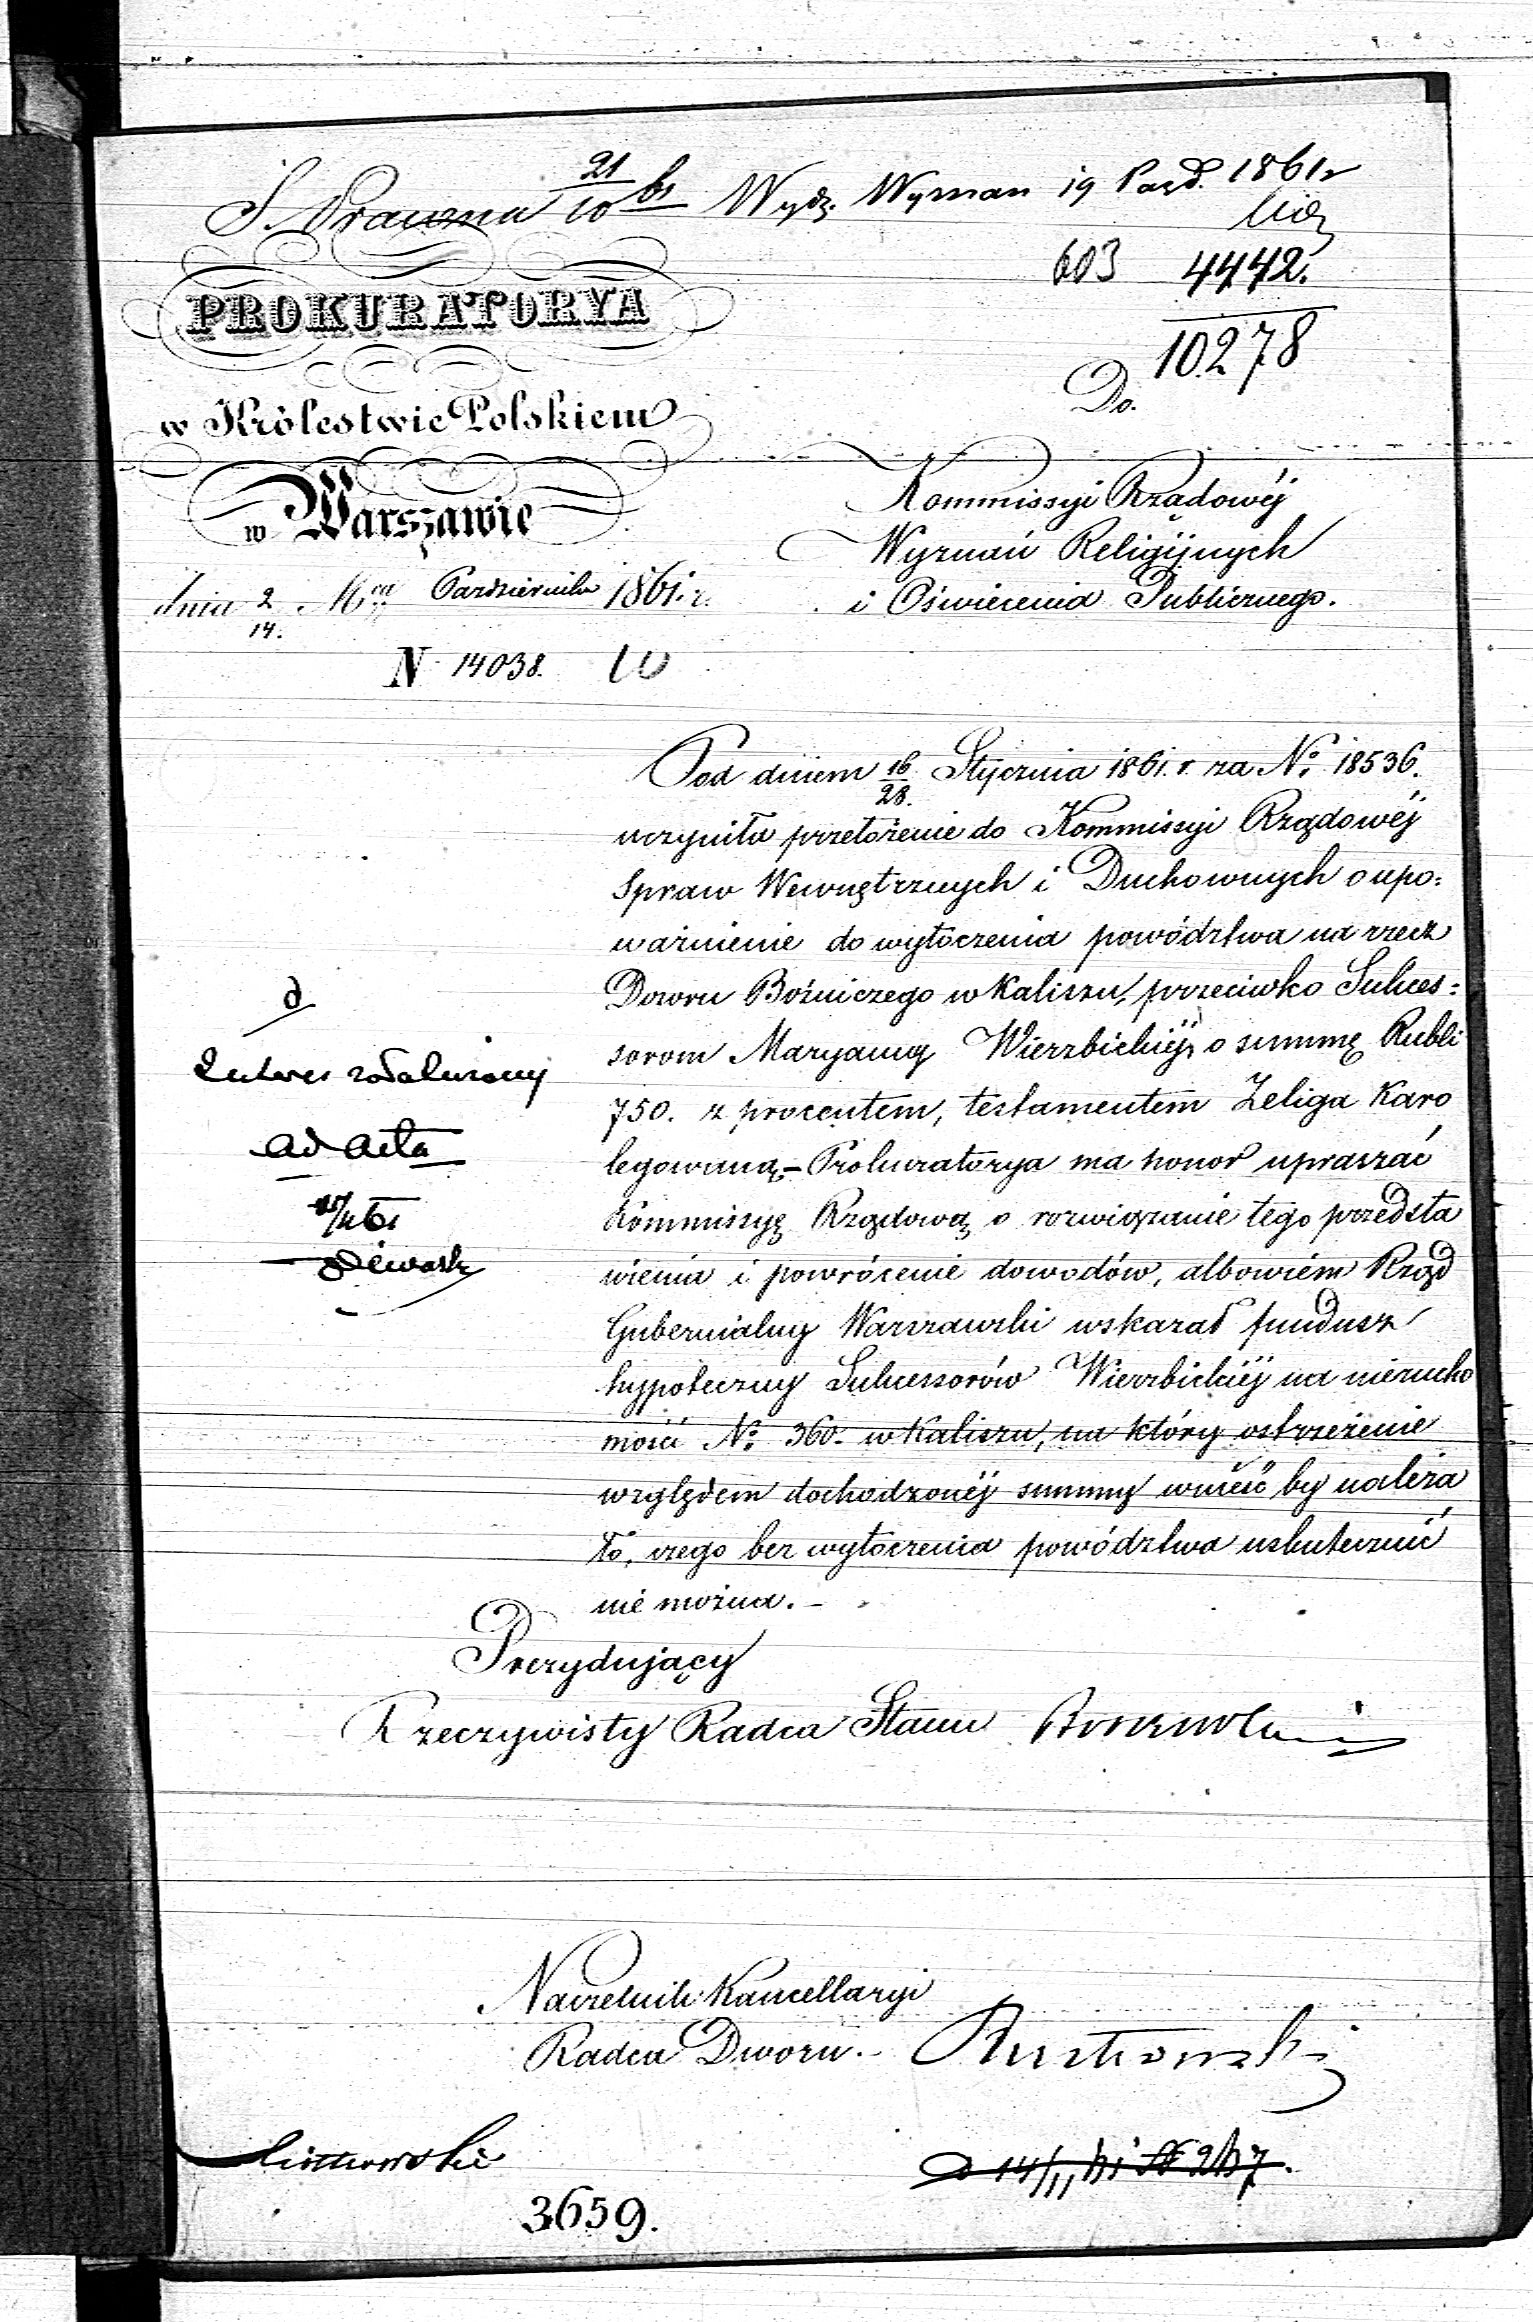 S. Prawna 21/10 61 Wydz. Wyznan 19 Paźd. 1861 r
603 4442.
10278
PROKURATORYA
w Królestwie Polskiem
w Warszawie
dnia 2/14. M Października 1861. r.
N 14038.
Do.
Kommissyi Rządowéj
Wyznań Religijnych
i Oświecenia Publicznego.
Pod dniem 16/28. Stycznia 1861. r. za No. 18536.
uczyniła przełożenie do Kommissyi Rządowéj
Spraw Wewnętrznych i Duchownych o upo:
ważnienie do wytoczenia powództwa na rzecz
Dozoru Bożniczego w Kaliszu, przeciwko Sukces:
sorom Maryanny Wierzbickiéj, o summę Rubli
750. z procentem, testamentem Zeliga Karo
legowaną. – Prokuratorya ma honor upraszać
Kommissyę Rządową o rozwiązanie tego przedsta
wienia i powrócenie dowodów, albowiem Rząd
Gubernialny Warszawski wskazał fundusz
hypoteczny Sukcessorów Wierzbickiéj na nierucho
mości No. 360. w Kaliszu, na który ostrzeżenie
względem dochodzonéj summy wnieść by należa
ło, czego bez wytoczenia powództwa uskutecznić
nie można. –
ad acta
Prezydujący
Rzeczywisty Radca Stanu
Naczelnik Kancellaryi
Radca Dworu.
3659.